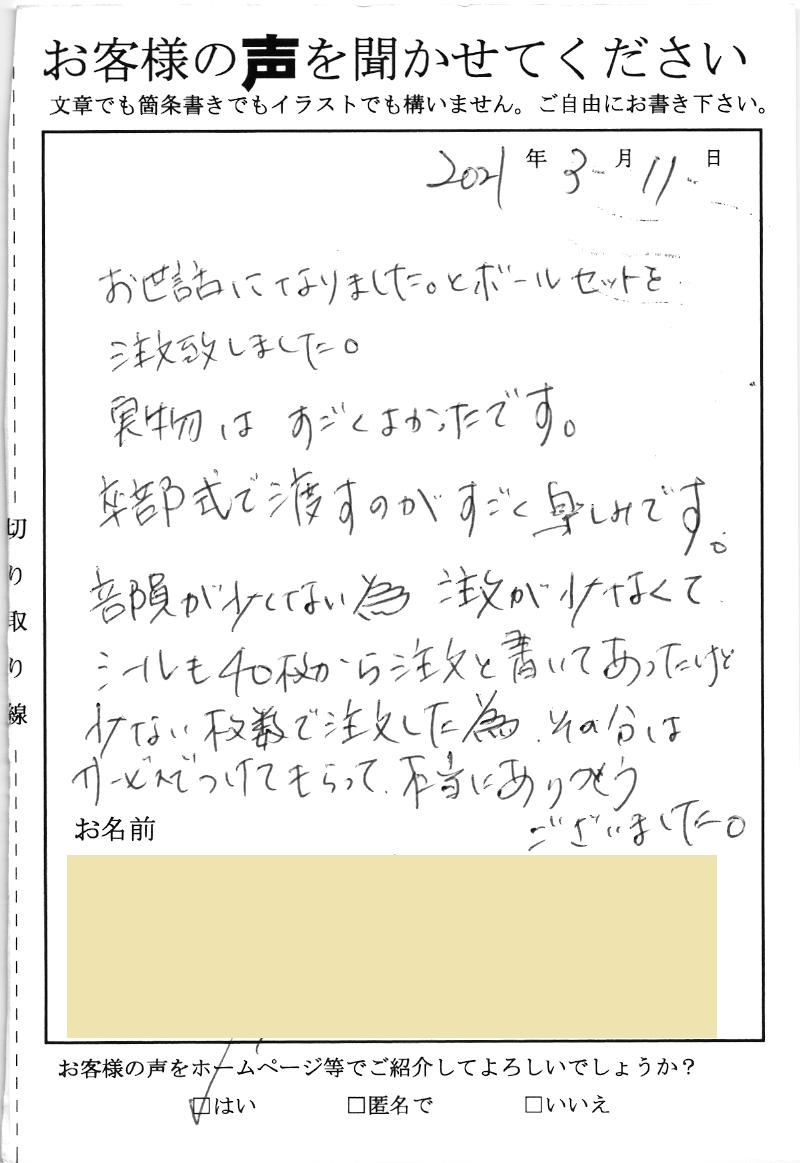 お客様の声を聞かせてください
文章でも箇条書きでもイラストでも構いません。ご自由にお書き下さい。
2021年3月11日
お世話になりました。とボールセットを
注文致しました。
実物はすごくよかったです。
卒部式で渡すのがすごく楽しみです。
部員が少くない為 注文が少なくて
シールも40枚から注文と書いてあったけど
少ない枚数で注文した為、その分は
サービスでつけてもらって、本当にありがとう
ございました。
お名前
お客様の声をホームページ等でご紹介してよろしいでしょうか？
☑はい □匿名で □いいえ
切り取り線